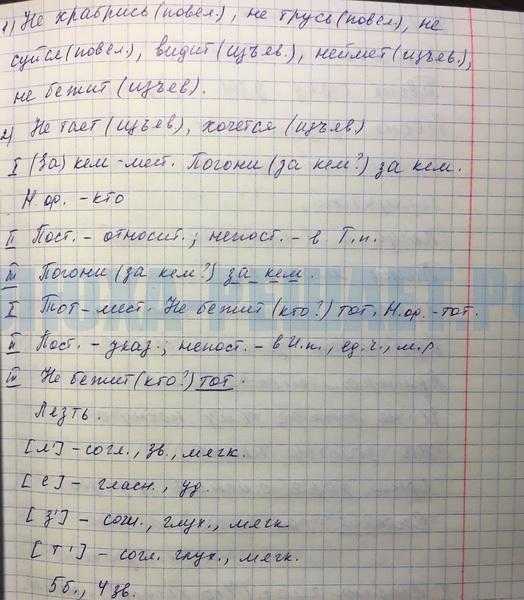 1) Не храбрись (повел.), не трусь (повел.), не
суйся (повел.), видит (изъяв.), неймет (изъяв.),
не бежит (изъяв.).
2) Не тает (изъяв.), хочется (изъяв)
I (За) кем - мест. Погони (за кем?) за кем.
Н.ф. - кто
II Пост. - относит.; непост. - в Т.п.
III Погони (за кем?) за кем.
I Тот - мест. Не бежит (кто?) тот. Н.ф. - тот.
II Пост. - указ.; непост. - в И.п., ед.ч., м.р
III Не бежит (кто?) тот.
Лезть.
[л'] - согл., зв., мягк.
[е] - гласн., уд.
[з'] - согл., глух., мягк.
[т'] - согл. глух., мягк.
5б., 4 зв.